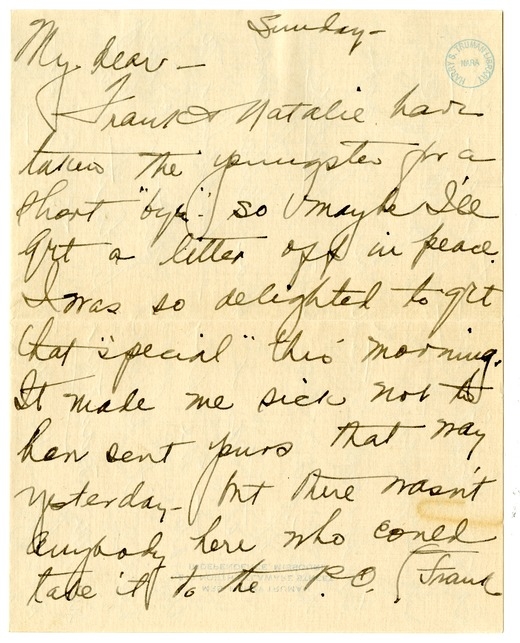 Sunday-
My dear -
Frank & Natalie have
taken the youngster for a
short "bye" so maybe I'll
get a letter off in peace.
I was so delighted to get
that "special" this morning.
It made me sick not to
have sent yours that way
yesterday - but there wasn't
anybody here who could
take it to the P.O. (Frank
HARRY S. TRUMAN LIBRARY
NARA